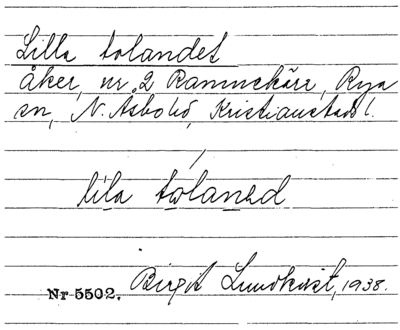 Lilla tolandet
åker, nr 2 Rammekärr, Rya
sn, N. Åsbo hd, Kristianstads l.
lila tolaned
Nr 5502. Birgit Lundkvist, 1938.